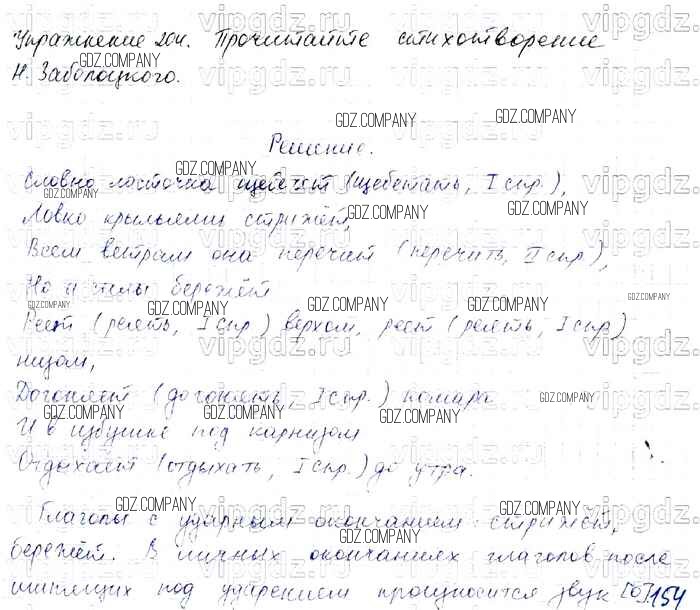 Упражнение 204. Прочитайте стихотворение
Н. Заболоцкого.
Решение.
Словно ласточка щебечет (щебетать, I спр.),
Ловко крыльями стрижёт,
Всем ветрам она перечит (перечить, II спр.),
Но и силы бережёт.
Реет (реять, I спр.) верхом, реет (реять, I спр.)
низом,
Догоняет (догонять, I спр.) комара
И в избушке под карнизом
Отдыхает (отдыхать, I спр.) до утра.
Глаголы с ударным окончанием: стрижёт,
бережёт. В личных окончаниях глаголов после
шипящих под ударением произносится звук [о]. 154
GDZ.COMPANY
vipgdz.ru